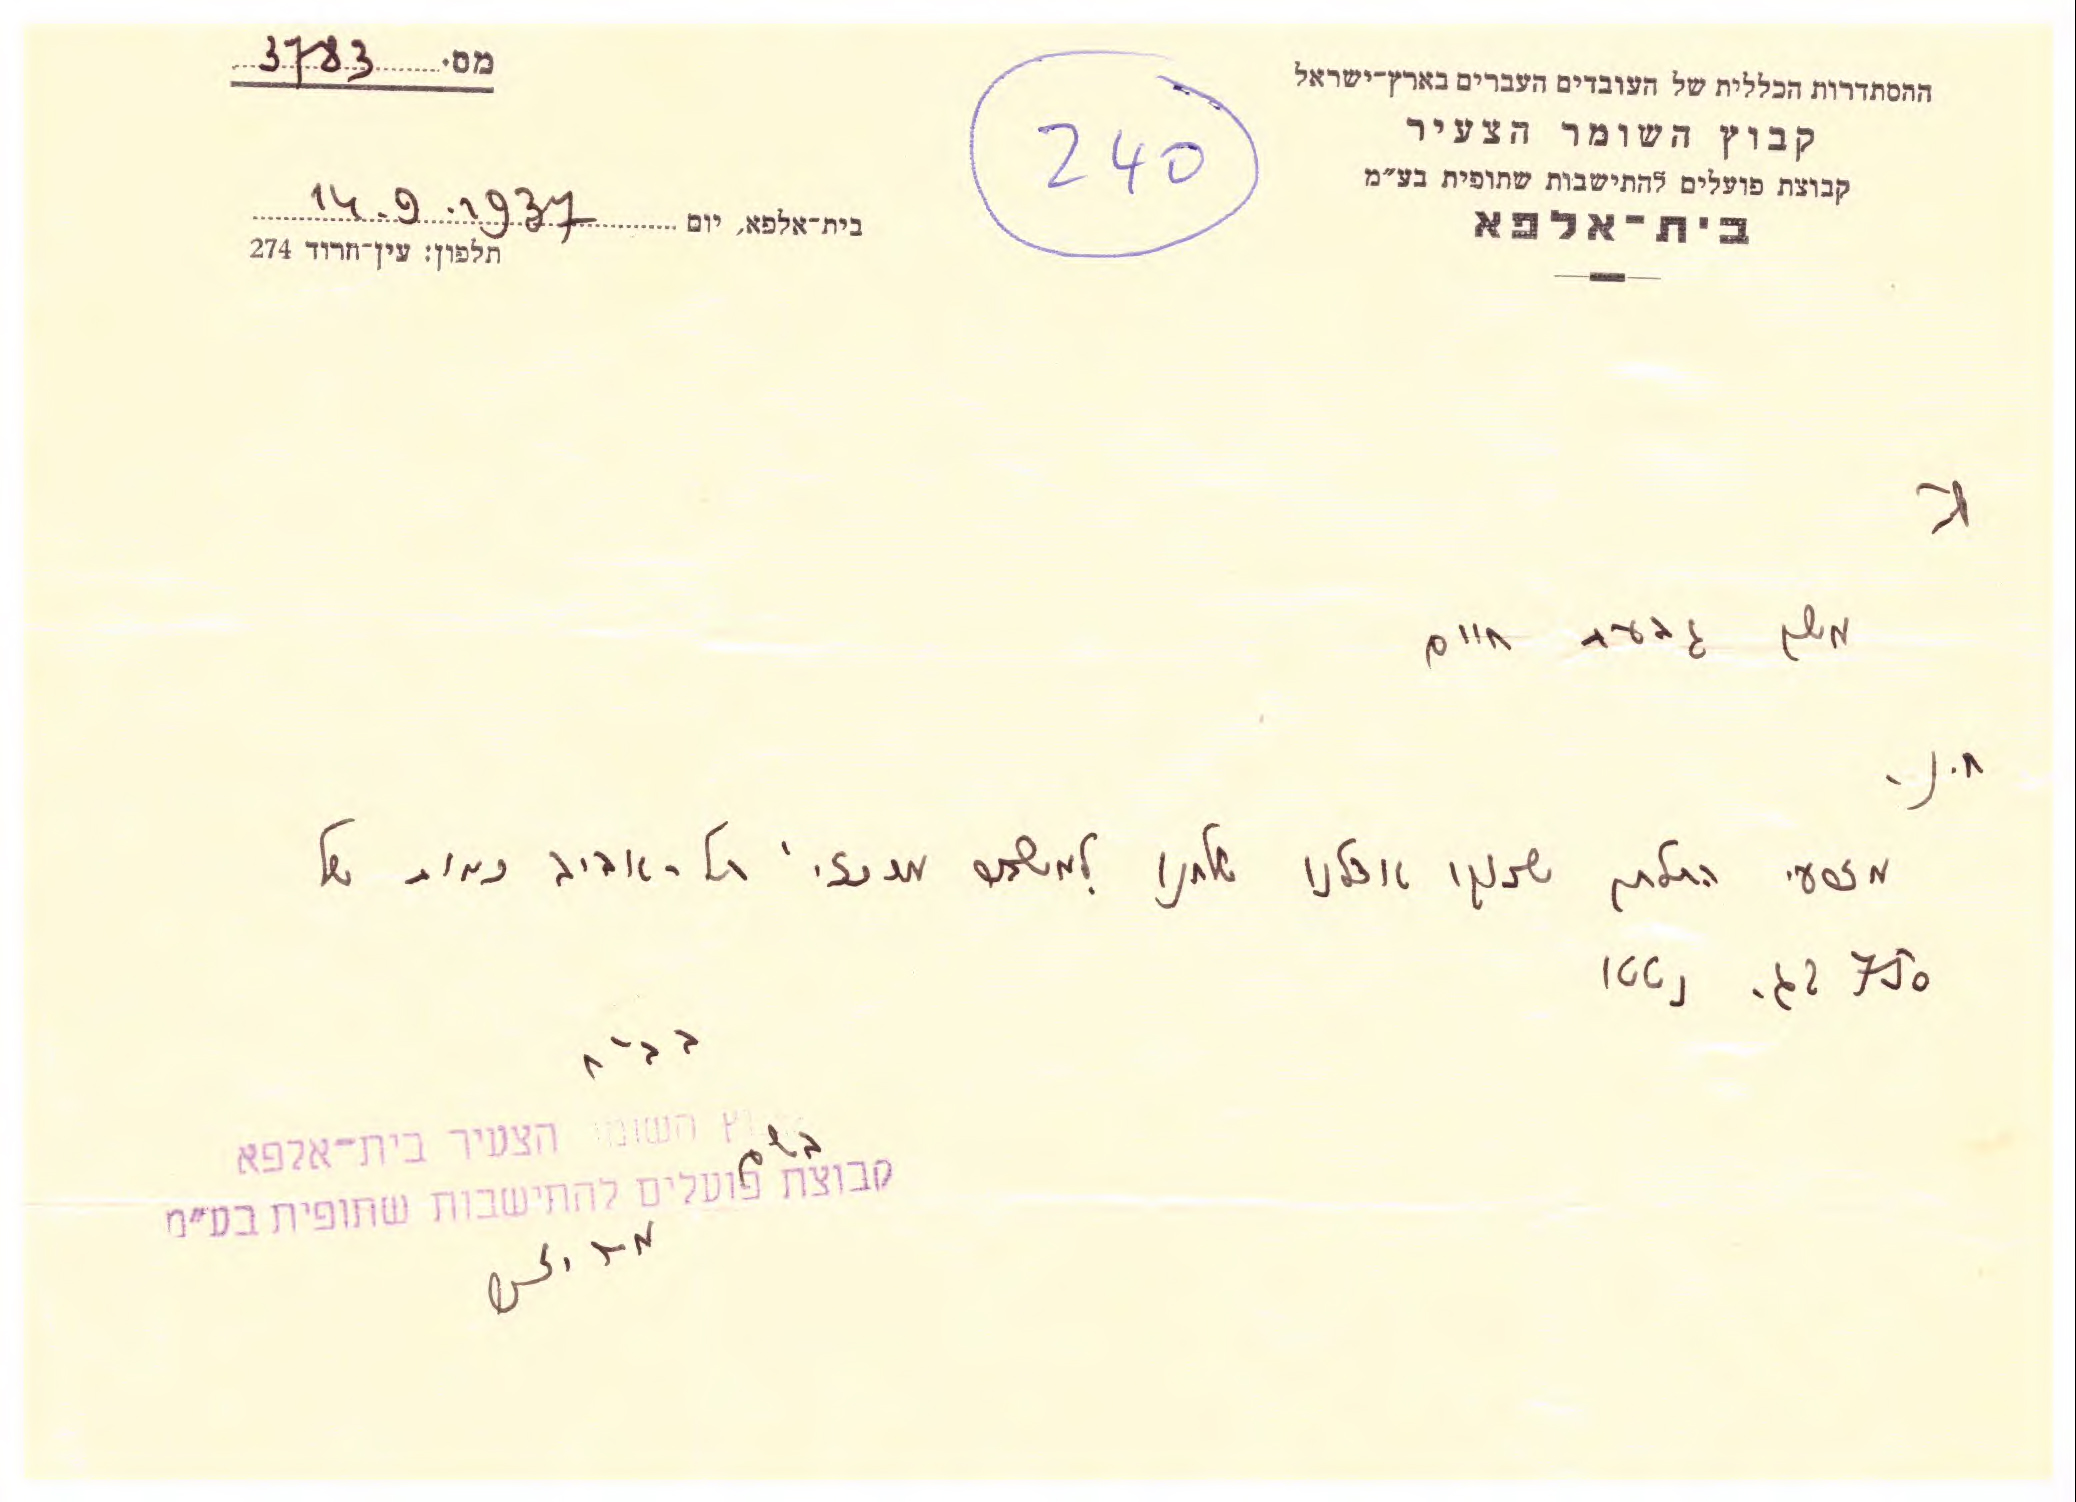 ההסתדרות הכללית של העובדים העברים בארץ-ישראל
קבוץ השומר הצעיר
קבוצת פועלים להתישבות שתופית בע״מ
בית-אלפא
מס. 3783
240
בית-אלפא, יום 14.9.1937
תלפון: עין-חרוד 274
לי
משק גבעת חיים
ח.נ.
מזרעי התלתן שנוקו אצלנו שלחנו למשרד תל-אביב כמות של
750 קג. נטטו
בב״ח
בשם
קבוץ השומר הצעיר בית-אלפא
קבוצת פועלים להתישבות שתופית בע״מ